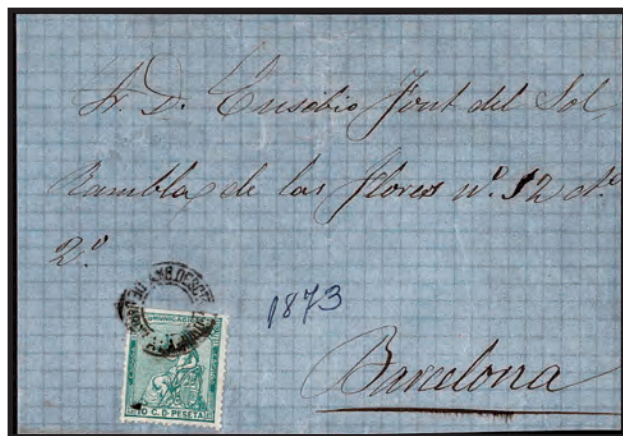 Sr. D. Eusebio Font del Sol,
Rambla de las flores nº. 12 
2º
1873
COMUNICACIONES
10 C. D. PESETA
Barcelona